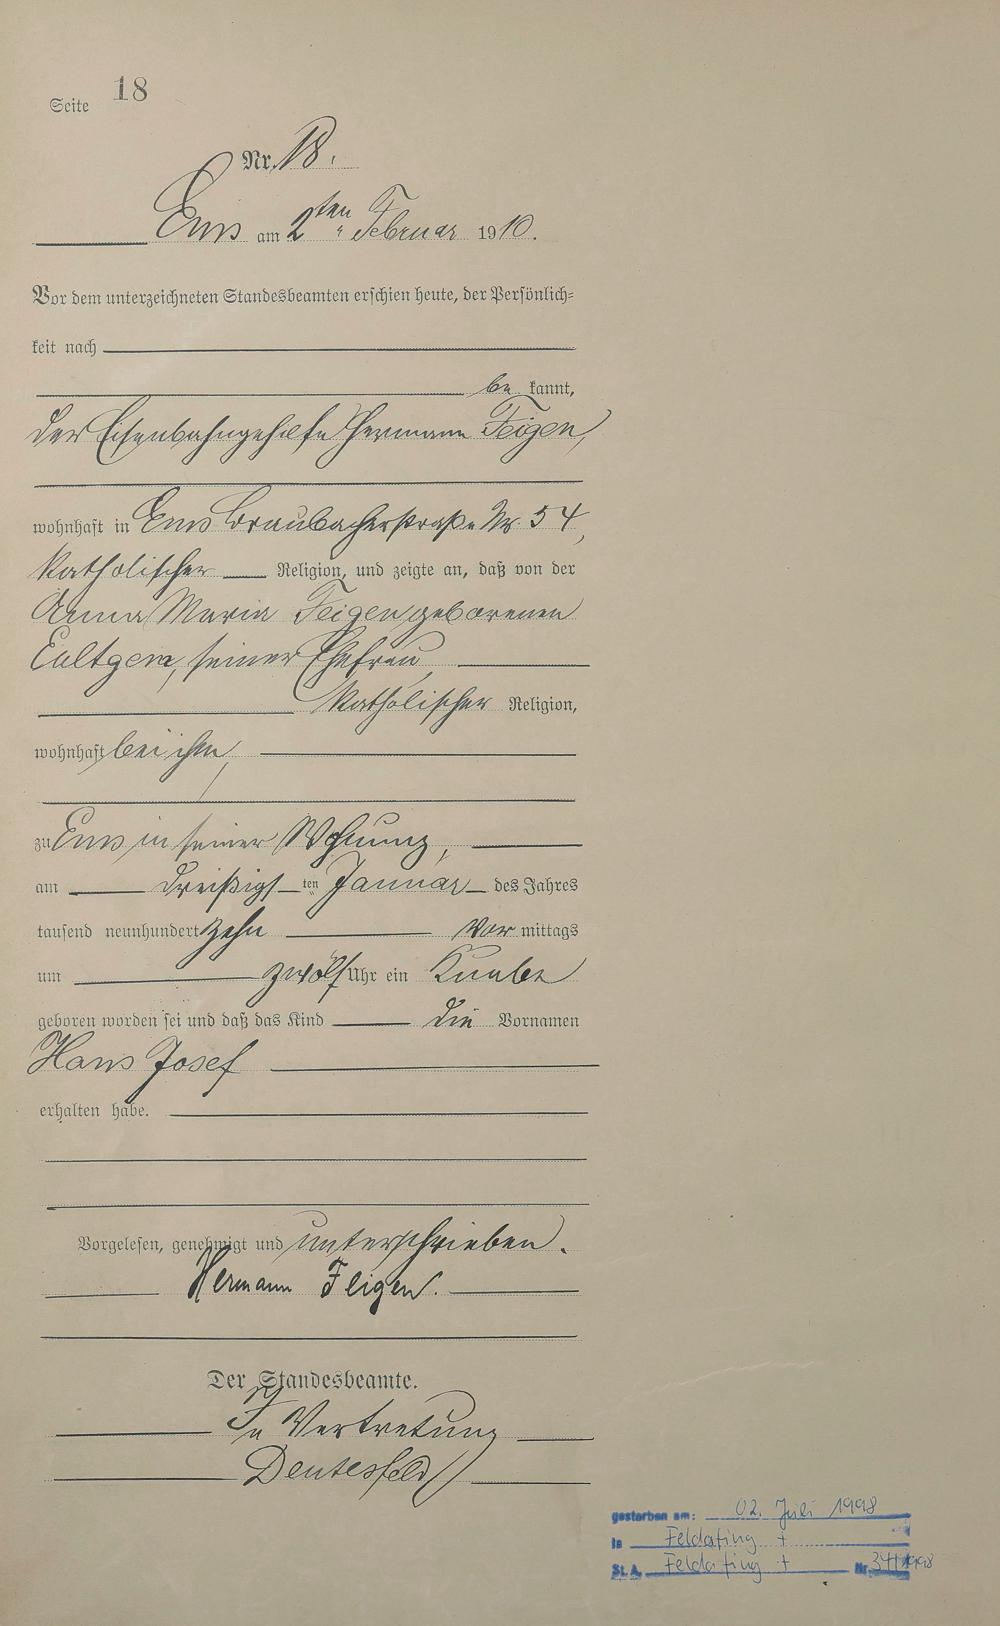 Seite 18
Nr. 18.
Ems am 2ten Februar 1910.
Vor dem unterzeichneten Standesbeamten erschien heute, der Persönlich=
keit nach
be kannt,
der Eisenbahngehilfe Hermann Feigen,
wohnhaft in Ems Braubacherstraße Nr. 54,
katholischer Religion, und zeigte an, daß von der
Anna Maria Feigen geborenen
Eultgem, seiner Ehefrau
katholischer Religion,
wohnhaft bei ihm,
zu Ems in seiner Wohnung,
am dreißigsten Januar des Jahres
tausend neunhundert zehn Vor mittags
um zwölf Uhr ein Knabe
geboren worden sei und daß das Kind die Vornamen
Hans Josef
erhalten habe.
Vorgelesen, genehmigt und unterschrieben.
Hermann Feigen.
Der Standesbeamte.
In Vertretung
Deutesfeld
gestorben am: 02. Juli 1998
in Feldafing
St. A. Feldafing Nr. 34/1998